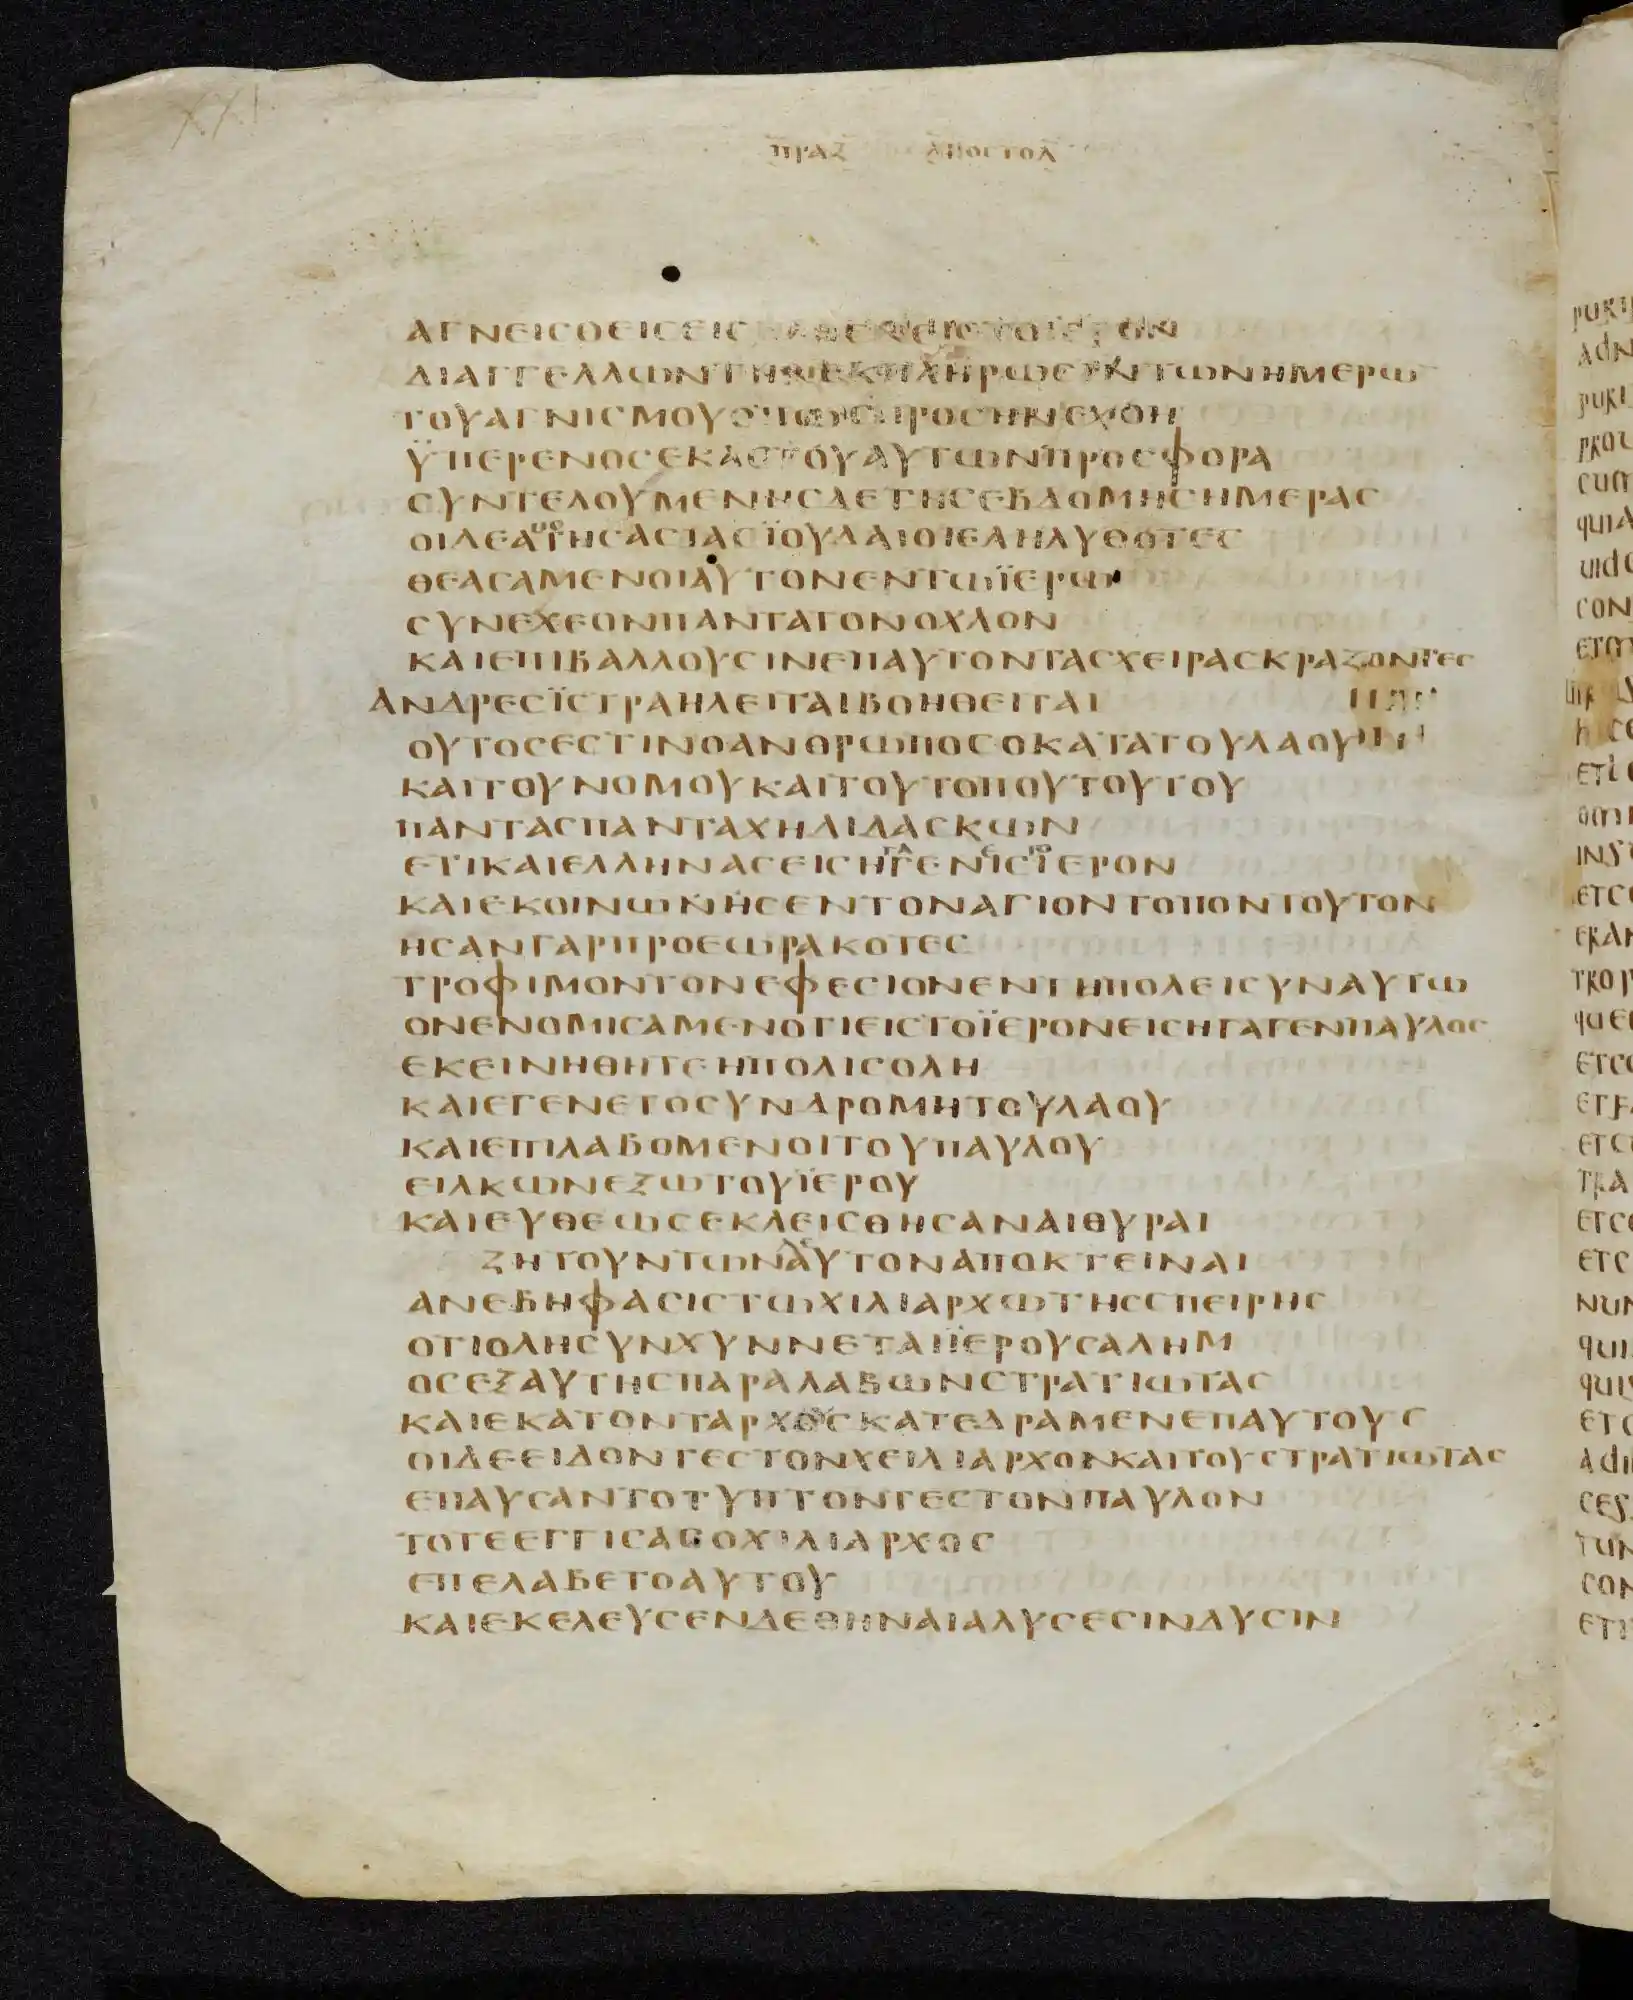 XXI
ΠΡΑΞ ΑΠΟΣΤΟΛ
ΑΓΝΕΙСΘΕΙСΕΙС ΕΙСΤΟΪΕΡΟΝ
ΔΙΑΓΓΕΛΛΩΝΤΗΝΕΚΠΛΗΡΩСΙΝΤΩΝΗΜΕΡΩ
ΤΟΥΑΓΝΙСΜΟΥΟΠΩСΠΡΟСΗΝΕΧΘΗ
ΫΠΕΡΕΝΟСΕΚΑСΤΟΥΑΥΤΩΝΠΡΟСΦΟΡΑ
СΥΝΤΕΛΟΥΜΕΝΗСΔΕΤΗСΕΒΔΟΜΗСΗΜΕΡΑС
ΟΙΔΕΑΠΟΤΗСΑСΙΑСΪΟΥΔΑΙΟΙΕΛΗΛΥΘΟΤΕС
ΘΕΑСΑΜΕΝΟΙΑΥΤΟΝΕΝΤΩΪΕΡΩ
СΥΝΕΧΕΟΝΠΑΝΤΑΤΟΝΟΧΛΟΝ
ΚΑΙΕΠΙΒΑΛΛΟΥСΙΝΕΠΑΥΤΟΝΤΑСΧΕΙΡΑСΚΡΑΖΟΝΤΕС
ΑΝΔΡΕСΪСΤΡΑΗΛΕΙΤΑΙΒΟΗΘΕΙΤΑΙ
ΟΥΤΟСΕСΤΙΝΟΑΝΘΡΩΠΟСΟΚΑΤΑΤΟΥΛΑΟΥ
ΚΑΙΤΟΥΝΟΜΟΥΚΑΙΤΟΥΤΟΠΟΥΤΟΥΤΟΥ
ΠΑΝΤΑСΠΑΝΤΑΧΗΔΙΔΑСΚΩΝ
ΕΤΙΚΑΙΕΛΛΗΝΑСΕΙСΗΓΑΓΕΝΕΙСΤΟΪΕΡΟΝ
ΚΑΙΕΚΟΙΝΩΝΗСΕΝΤΟΝΑΓΙΟΝΤΟΠΟΝΤΟΥΤΟΝ
ΗСΑΝΓΑΡΠΡΟΕΩΡΑΚΟΤΕС
ΤΡΟΦΙΜΟΝΤΟΝΕΦΕСΙΟΝΕΝΤΗΠΟΛΕΙСΥΝΑΥΤΩ
ΟΝΕΝΟΜΙСΑΜΕΝΟΤΙΕΙСΤΟΪΕΡΟΝΕΙСΗΓΑΓΕΝΠΑΥΛΟС
ΕΚΕΙΝΗΘΗΤΕΗΠΟΛΙСΟΛΗ
ΚΑΙΕΓΕΝΕΤΟСΥΝΔΡΟΜΗΤΟΥΛΑΟΥ
ΚΑΙΕΠΙΛΑΒΟΜΕΝΟΙΤΟΥΠΑΥΛΟΥ
ΕΙΛΚΩΝΕΞΩΤΟΥΪΕΡΟΥ
ΚΑΙΕΥΘΕΩСΕΚΛΕΙСΘΗСΑΝΑΙΘΥΡΑΙ
ΖΗΤΟΥΝΤΩΝΔΕΑΥΤΟΝΑΠΟΚΤΕΙΝΑΙ
ΑΝΕΒΗΦΑСΙСΤΩΧΙΛΙΑΡΧΩΤΗССΠΕΙΡΗС
ΟΤΙΟΛΗСΥΝΧΥΝΝΕΤΑΙΪΕΡΟΥСΑΛΗΜ
ΟСΕΞΑΥΤΗСΠΑΡΑΛΑΒΩΝСΤΡΑΤΙΩΤΑС
ΚΑΙΕΚΑΤΟΝΤΑΡΧΟΥСΚΑΤΕΔΡΑΜΕΝΕΠΑΥΤΟΥС
ΟΙΔΕΕΙΔΟΝΤΕСΤΟΝΧΕΙΛΙΑΡΧΟΝΚΑΙΤΟΥСΤΡΑΤΙΩΤΑС
ΕΠΑΥСΑΝΤΟΤΥΠΤΟΝΤΕСΤΟΝΠΑΥΛΟΝ
ΤΟΤΕΕΓΓΙСΑСΟΧΙΛΙΑΡΧΟС
ΕΠΕΛΑΒΕΤΟΑΥΤΟΥ
ΚΑΙΕΚΕΛΕΥСΕΝΔΕΘΗΝΑΙΑΛΥСΕСΙΝΔΥСΙΝ